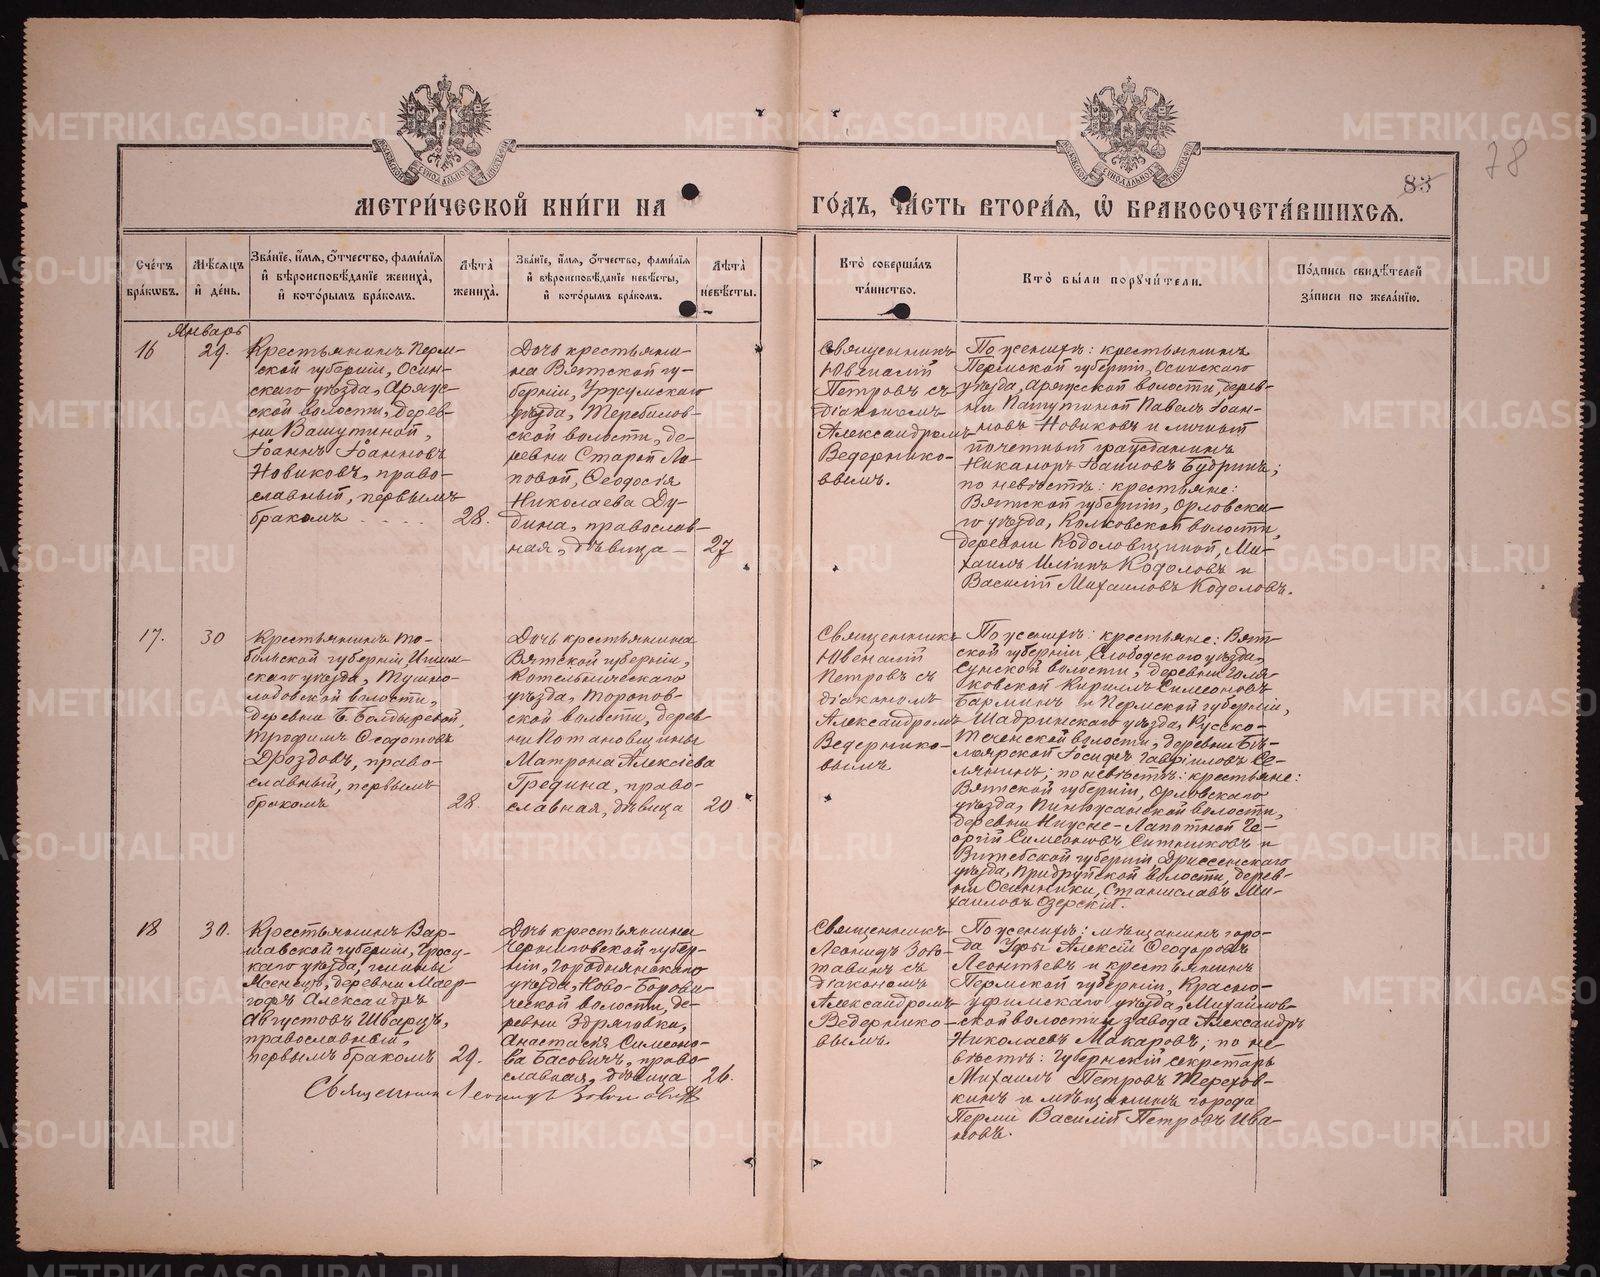 83
78
МЕТРИ́ЧЕСКОЙ КНИ́ГИ НА
ГО́ДЪ, ЧА́СТЬ ВТОРА́Я, Ѡ҆ БРАКОСОЧЕТА́ВШИХСЯ.
Сче́тъ бра́кѡвъ.
Мѣ́сяцъ и҆ де́нь.
Зва́нїе, и҆́мя, ѻ҆́тчество, фами́лїя
и҆ вѣроисповѣ́данїе жениха̀,
и҆ кото́рымъ бра́комъ.
Лѣ́та жениха̀.
Зва́нїе, и҆́мя, ѻ҆́тчество, фами́лїя
и҆ вѣроисповѣ́данїе невѣ́сты,
и҆ кото́рымъ бра́комъ.
Лѣ́та невѣ́сты.
Кто̀ соверша́лъ
та́инство.
Кто̀ бы́ли порꙋчи́тели.
По́дпись свидѣ́телей
за́писи по жела́нїю.
Январь
16
29.
Крестьянинъ Перм-
ской губерніи, Осин-
скаго уѣзда, Аряж-
ской волости, дерев-
ни Вашутиной,
Іоаннъ Іоанновъ
Новиковъ, право-
славный, первымъ
бракомъ . . . .
28.
Дочь крестьяни-
на Вятской гу-
берніи, Уржумскаго
уѣзда, Теребилов-
ской волости, де-
ревни Старой Ли-
повой, Ѳеодосія
Николаева Ду-
дина, православ-
ная, дѣвица –
27
Священникъ
Ювеналій
Петровъ съ
діакономъ
Александромъ
Ведернико-
вымъ.
По женихѣ: крестьянинъ
Пермской губерніи, Осинскаго
уѣзда, Аряжской волости, дерев-
ни Пашутиной Павелъ Іоан-
новъ Новиковъ и личный
почетный гражданинъ
Никаноръ Іоанновъ Будринъ;
по невѣстѣ: крестьяне:
Вятской губерніи, Орловска-
го уѣзда, волости,
деревни Кодоловщиной, Ми-
хаилъ Илiинъ Кодоловъ и
Василій Михаиловъ Кодоловъ.
17.
30
Крестьянинъ То-
больской губерніи, Ишим-
скаго уѣзда, Тушно-
лобовской волости,
деревни Б. Болдыревой,
Трофимъ Ѳеодотовъ
Дроздовъ, право-
славный, первымъ
бракомъ
28.
Дочь крестьянина
Вятской губерніи,
Котельническаго
уѣзда, Торопов-
ской волости, дерев
ни Котановщины
Матрона Алексіева
Гредина, право-
славная, дѣвица
20.
Священникъ
Ювеналій
Петровъ съ
діакономъ
Александромъ
Ведернико-
вымъ
По женихѣ: крестьяне: Вят-
ской губерніи, Слободскаго уѣзда,
Сунской волости, деревни Голя-
ковской Кириллъ Симеоновъ
Барминъ и Пермской губерніи,
Шадринскаго уѣзда, Русско-
Теченской волости, деревни Бѣ-
лоярской Іосифъ Гавріиловъ Се-
лянинъ; по невѣстѣ: крестьяне:
Вятской губерніи, Орловскаго
уѣзда, Пинжусанской волости,
деревни Нижне-Лапотной Ге-
оргій Симеоновъ Ситниковъ и
Витебской губерніи Дриссенскаго
уѣзда, Придруйской волости, дерев-
ни Осинники, Станиславъ Ми-
хаиловъ Озерскій.
18
30.
Крестьянинъ Вар-
шавской губерніи, Гросу-
каго уѣзда, гмины
Ясенецъ, деревни Маер-
гофъ Александръ
Августовъ Шварцъ,
православный,
первымъ бракомъ
29.
Дочь крестьянина
Черниговской губер-
ніи, Городнянскаго
уѣзда, Ново-Борови-
ческой волости, де-
ревни Здряговки,
Анастасія Симеоно-
ва Басовичъ, право-
славная, дѣвица
26.
Священникъ
Леонидъ Зво-
тавинъ съ
діакономъ
Александромъ
Ведернико-
вымъ.
По женихѣ: мѣщанинъ горо-
да Уфы Алексій Ѳеодоровъ
Леонтьевъ и крестьянинъ
Пермской губерніи, Красно-
уфимскаго уѣзда, Михайлов-
ской волости и завода Александръ
Николаевъ Макаровъ; по не-
вѣстѣ: губернскій секретарь
Михаилъ Петровъ Терехов-
кинъ и мѣщанинъ города
Перми Василій Петровъ Ива-
новъ.
Священникъ Леонидъ
METRIKI.GASO-URAL.RU